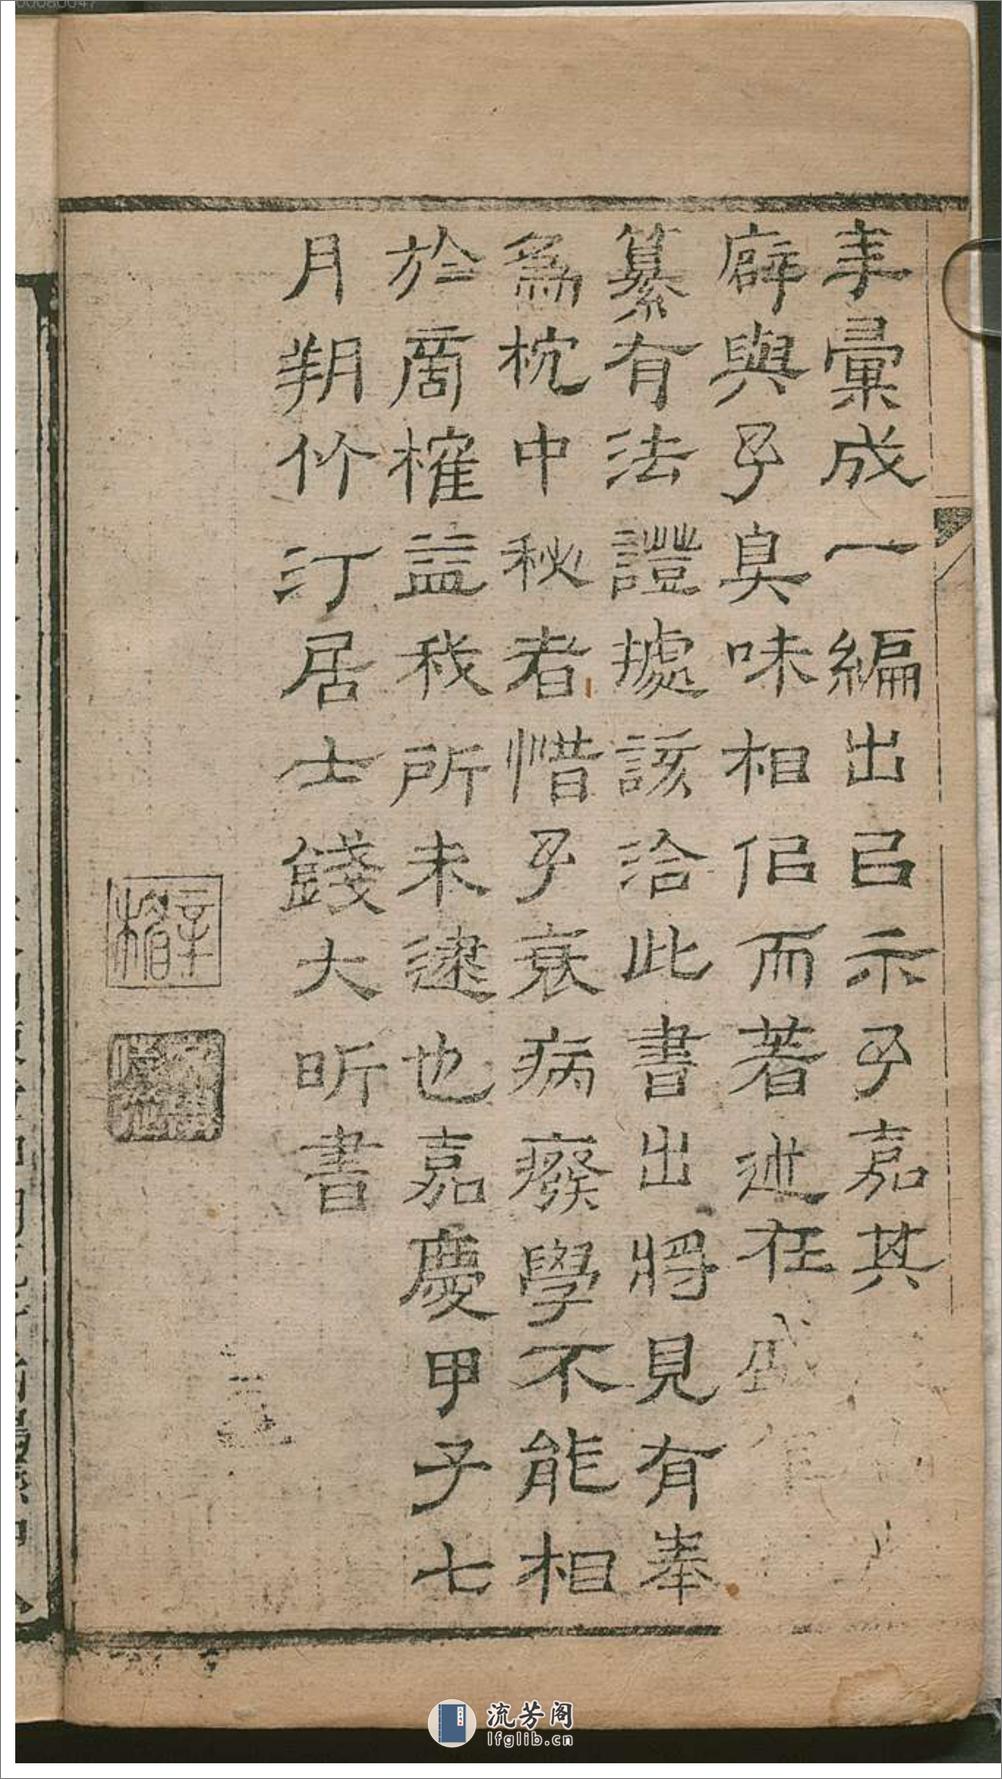 年彙成一編出已示予嘉其
癖與予臭味相侣而著述在盛年
纂有法證據該洽此書出將見有奉
為枕中秘者惜予衰病癈學不能相
於商榷益我所未逮也嘉慶甲子七
月朔竹汀居士錢大昕書
流芳阁
lfglib.cn